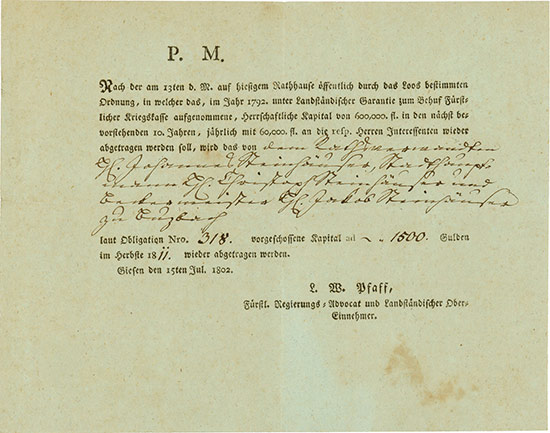 P. M.
Nach der am 13ten d. M. auf hiesigem Rathhause öffentlich durch das Loos bestimmten
Ordnung, in welcher das, im Jahr 1792. unter Landständischer Garantie zum Behuf Fürst-
licher Kriegskasse aufgenommene, Herrschaftliche Kapital von 600,000. fl. in den nächst be-
vorstehenden 10. Jahren, jährlich mit 60,000. fl. an die resp. Herren Interessenten wieder
abgetragen werden soll, wird das von dem Rathsverwandten
H. Johannes Steinhäuser, Stadthaupt-
mann H. Christoph Steinhäuser und
Beckermeister H. Jakob Steinhäuser
zu Buzbach
laut Obligation Nro. 318. vorgeschossene Kapital ad 1500. Gulden
im Herbste 1811. wieder abgetragen werden.
Giesen den 15ten Jul. 1802.
L. W. Pfaff,
Fürstl. Regierungs-Advocat und Landständischer Ober-
Einnehmer.